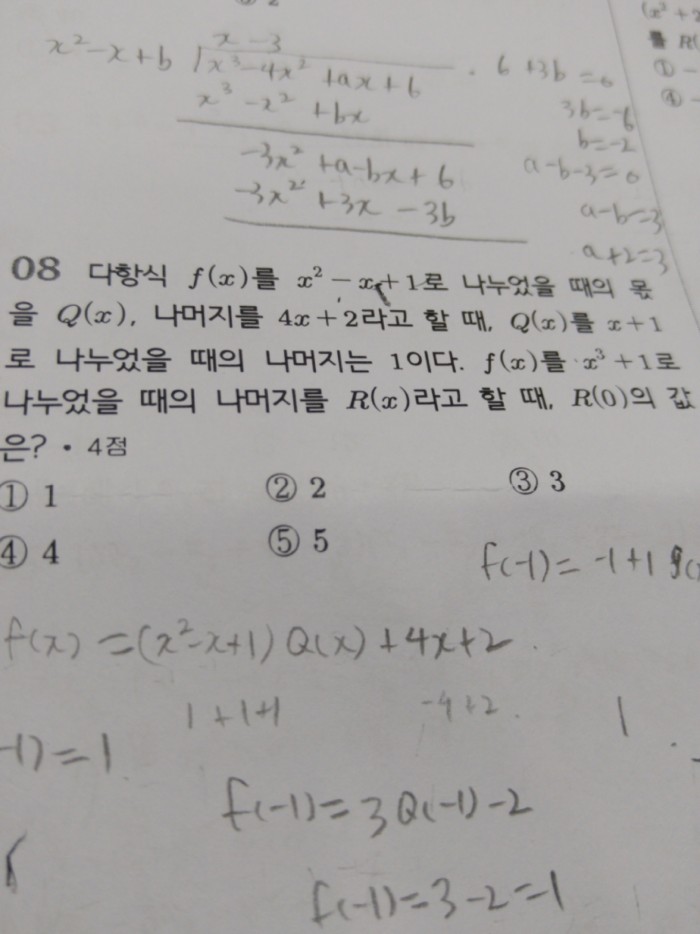 x - 3
x² - x + b ) x³ - 4x² + ax + 6
x³ - x² + bx
-3x² + a-bx + 6
-3x² + 3x - 3b
6 + 3b = 0
3b = -6
b = -2
a - b - 3 = 0
a - b = 3
a + 2 = 3
(x³ +
를 R(
①
④
08 다항식 f(x)를 x² - x + 1로 나누었을 때의 몫
을 Q(x), 나머지를 4x + 2라고 할 때, Q(x)를 x + 1
로 나누었을 때의 나머지는 1이다. f(x)를 x³ + 1로
나누었을 때의 나머지를 R(x)라고 할 때, R(0)의 값
은? • 4점
① 1 ② 2 ③ 3
④ 4 ⑤ 5
f(-1) = -1+1
f(x) = (x² - x + 1) Q(x) + 4x + 2
1 + 1 + 1 -4 + 2
-1) = 1
f(-1) = 3Q(-1) - 2
f(-1) = 3 - 2 = -1